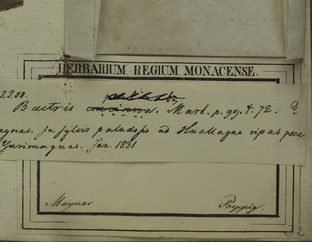 HERBARIUM REGIUM MONACENSE.
2200.
Bactris concinna. Mart. p. 99. t. 72. ?
Maynas. In sylvis paludos ad Huallagae ripas prope
Yurimaguas. Jan. 1831
Maynas
Poeppig.